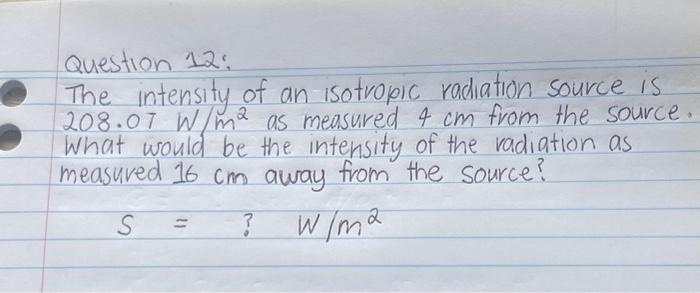 Question 12:
The intensity of an isotropic radiation source is
208.07 W/m² as measured 4 cm from the source.
What would be the intensity of the radiation as
measured 16 cm away from the source?
S = ? W/m²